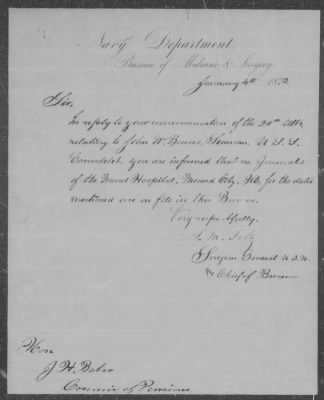 Navy Department.
Bureau of Medicine & Surgery
January 4th 1872
Sir,
In reply to your communication of the 20th Ulto,
relating to John W. Bower, Seaman, U.S.S.
Carondelet, you are informed that no Journals
of the Naval Hospital, Mound City, Ills for the dates
mentioned are on file in this Bureau.
Very respectfully,
Surgeon General U.S.N.
Chief of Bureau
Hon
J. H. Baker
Commis of Pensions